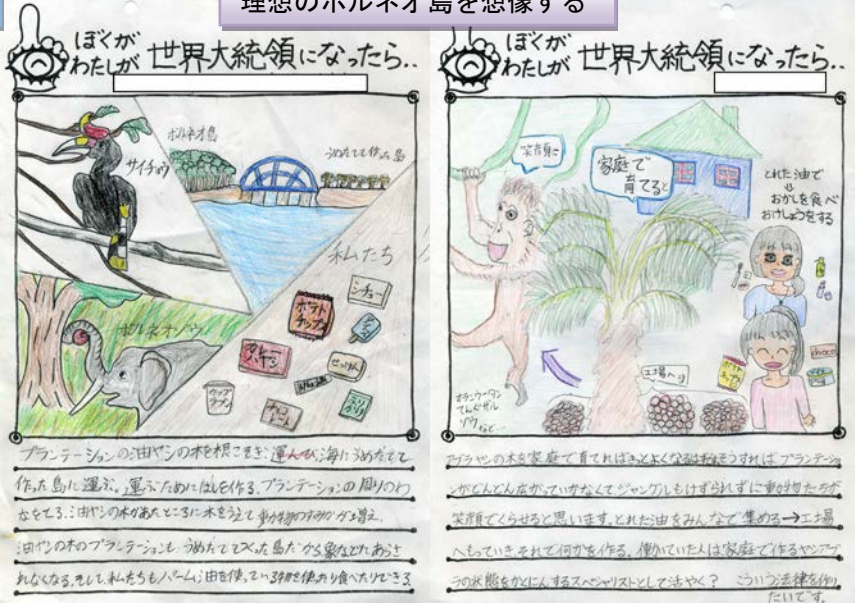 理想のボルネオ島を想像する
ぼくが
わたしが
世界大統領になったら‥
サイチョウ
ボルネオ島
うめたてて作った島
私たち
シチュー
ポテト
チップス
アイス
カレー
ハヤシ
せっけん
カップ
ラーメン
ボルネオゾウ
プランテーションの油ヤシの木を根こそぎ運んで海にうめたてて
作った島に運ぶ。運ぶためにはしを作る。プランテーションの周りのわ
なをとる。油ヤシの木があったところに木をうえて動物のすみかが増え、
油ヤシの木のプランテーションも、うめたててつくった島だから象などにあらさ
れなくなる。そして、私たちもパーム油を使っている物を使ったり食べたりできる
ぼくが
わたしが
世界大統領になったら‥
笑顔に
家庭で
育てると
とれた油で
おかしを食べ
おけしょうをする
工場へ
choco
オランウータン
てんぐザル
ゾウ
など…
アブラヤシの木を家庭で育てればきっとよくなるはずそうすれば、プランテーショ
ンがどんどん広がっていかなくてジャングルもけずられずに動物たちが
笑顔でくらせると思います。とれた油をみんなで集める→工場
へもっていきそれで何かを作る。働いていた人は家庭で作るヤシアブ
ラの状態をかくにんするスペシャリストとして活やく? こういう法律を作り
たいです。